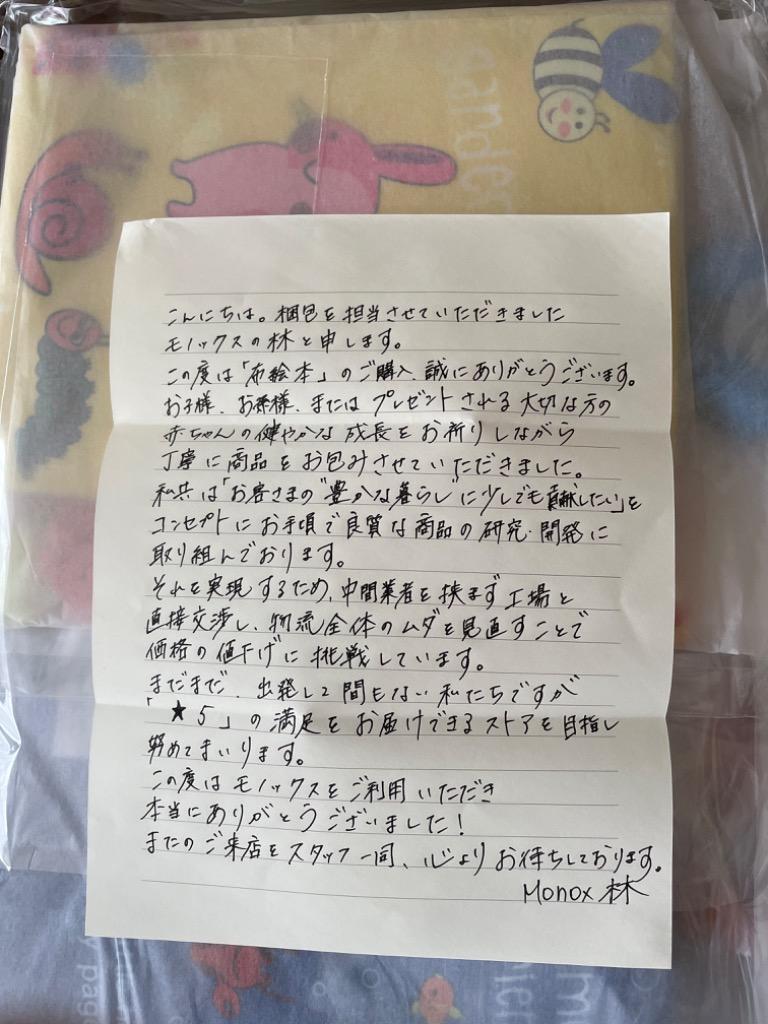 garden
こんにちは。梱包を担当させていただきました
モノックスの林と申します。
この度は「布絵本」のご購入、誠にありがとうございます。
お子様、お孫様、またはプレゼントされる大切な方の
赤ちゃんの健やかな成長をお祈りしながら
丁寧に商品をお包みさせていただきました。
私共は「お客さまの"豊かな暮らし"に少しでも貢献したい」を
コンセプトにお手頃で良質な商品の研究・開発に
取り組んでおります。
それを実現するため、中間業者を挟まず工場と
直接交渉し、物流全体のムダを見直すことで
価格の値下げに挑戦しています。
まだまだ、出発して間もない私たちですが
「★5」の満足をお届けできるストアを目指し
努めてまいります。
この度はモノックスをご利用いただき
本当にありがとうございました!
またのご来店をスタッフ一同、心よりお待ちしております。
Monox 林